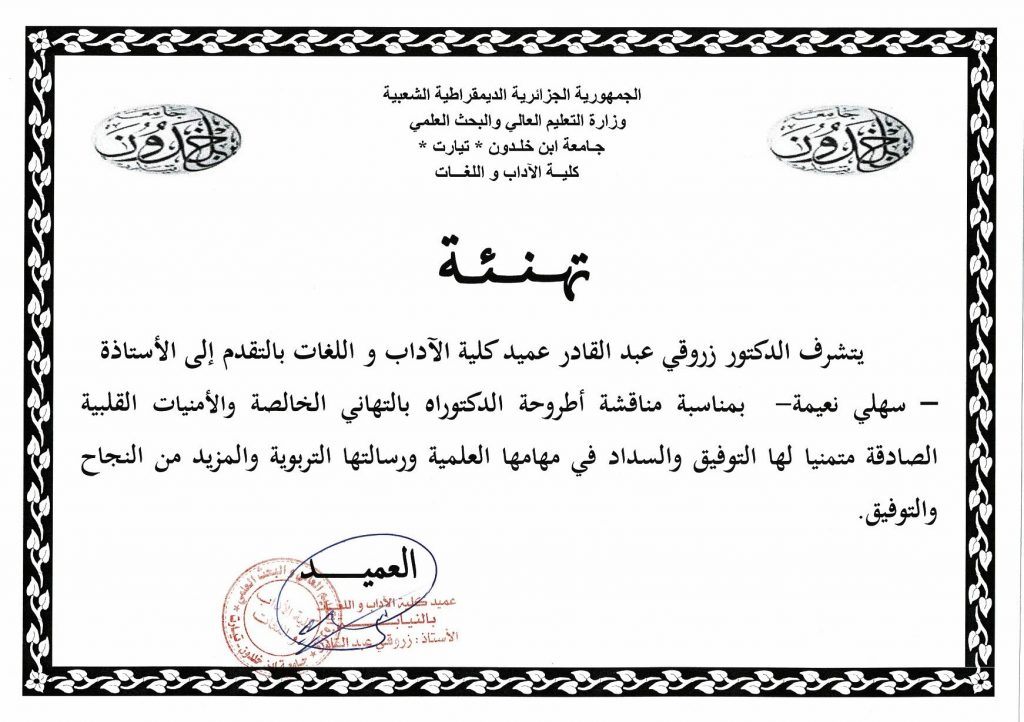 الجمهورية الجزائرية الديمقراطية الشعبية
وزارة التعليم العالي والبحث العلمي
جامعة ابن خلدون * تيارت *
كليــة الآداب و اللغــات
جامعة
ابن خلدون
جامعة
ابن خلدون
تهـنـئـة
يتشرف الدكتور زروقي عبد القادر عميد كلية الآداب و اللغات بالتقدم إلى الأستاذة
– سهلي نعيمة– بمناسبة مناقشة أطروحة الدكتوراه بالتهاني الخالصة والأمنيات القلبية
الصادقة متمنيا لها التوفيق والسداد في مهامها العلمية ورسالتها التربوية والمزيد من النجاح
والتوفيق.
العميـــــد
عميد كلية الآداب و اللغات
بالنيابـــــة
الأستاذ : زروقي عبد القادر